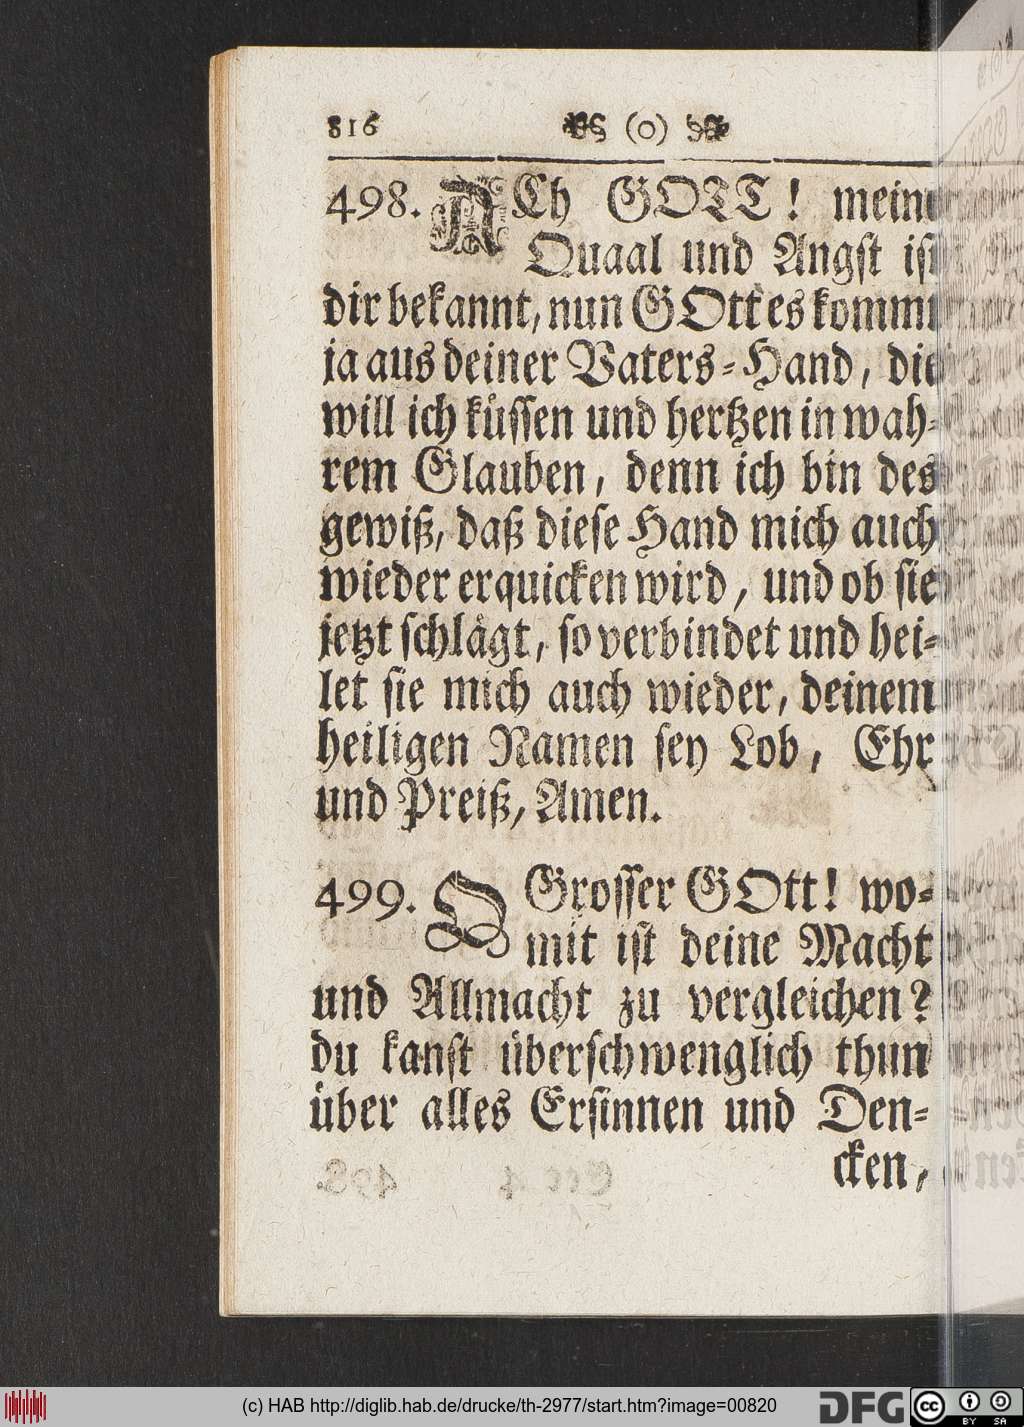 816 (o)
498. ACh GOTT! meine
Quaal und Angst ist
dir bekannt, nun GOtt es kommt
ja aus deiner Vaters-Hand, die
will ich küssen und hertzen in wah-
rem Glauben, denn ich bin des
gewiß, daß diese Hand mich auch
wieder erquicken wird, und ob sie
jetzt schlägt, so verbindet und hei-
let sie mich auch wieder, deinem
heiligen Namen sey Lob, Ehr
und Preiß, Amen.
499. O Grosser GOtt! wo-
mit ist deine Macht
und Allmacht zu vergleichen?
du kanst überschwenglich thun
über alles Ersinnen und Den-
cken,
(c) HAB http://diglib.hab.de/drucke/th-2977/start.htm?image=00820
DFG
cc BY SA